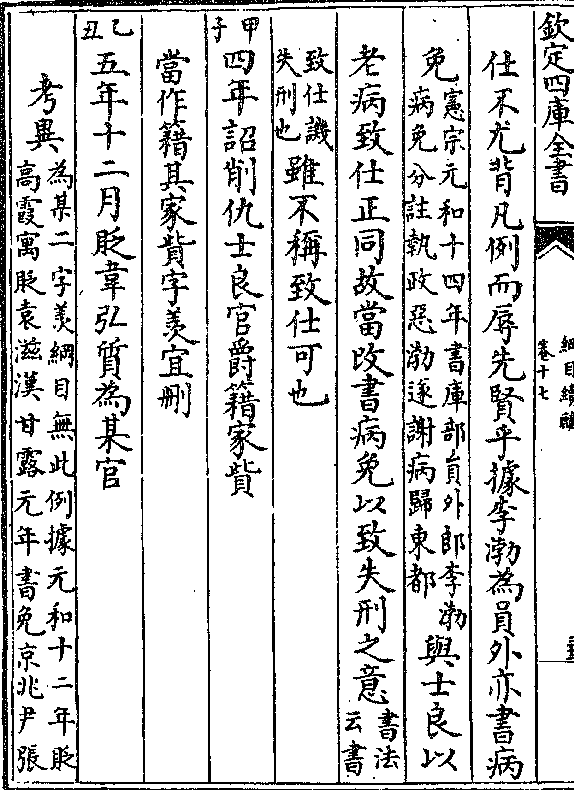 欽定四庫全書
綱目續麟
卷十七
仕不尤背凡例而辱先賢乎據李渤為員外亦書病
免
憲宗元和十四年書庫部員外郎李渤
病免分註執政惡渤遂謝病歸東都
與士良以
老病致仕正同故當改書病免以致失刑之意
書法
云書
致仕譏
失刑也
雖不稱致仕可也
甲
子
四年詔削仇士良官爵籍家貲
當作籍其家貲字羨宜刪
乙
丑
五年十二月貶韋弘質為某官
考異
為某二字羨綱目無此例據元和十二年貶
高霞寓貶袁滋漢甘露元年書免京兆尹張